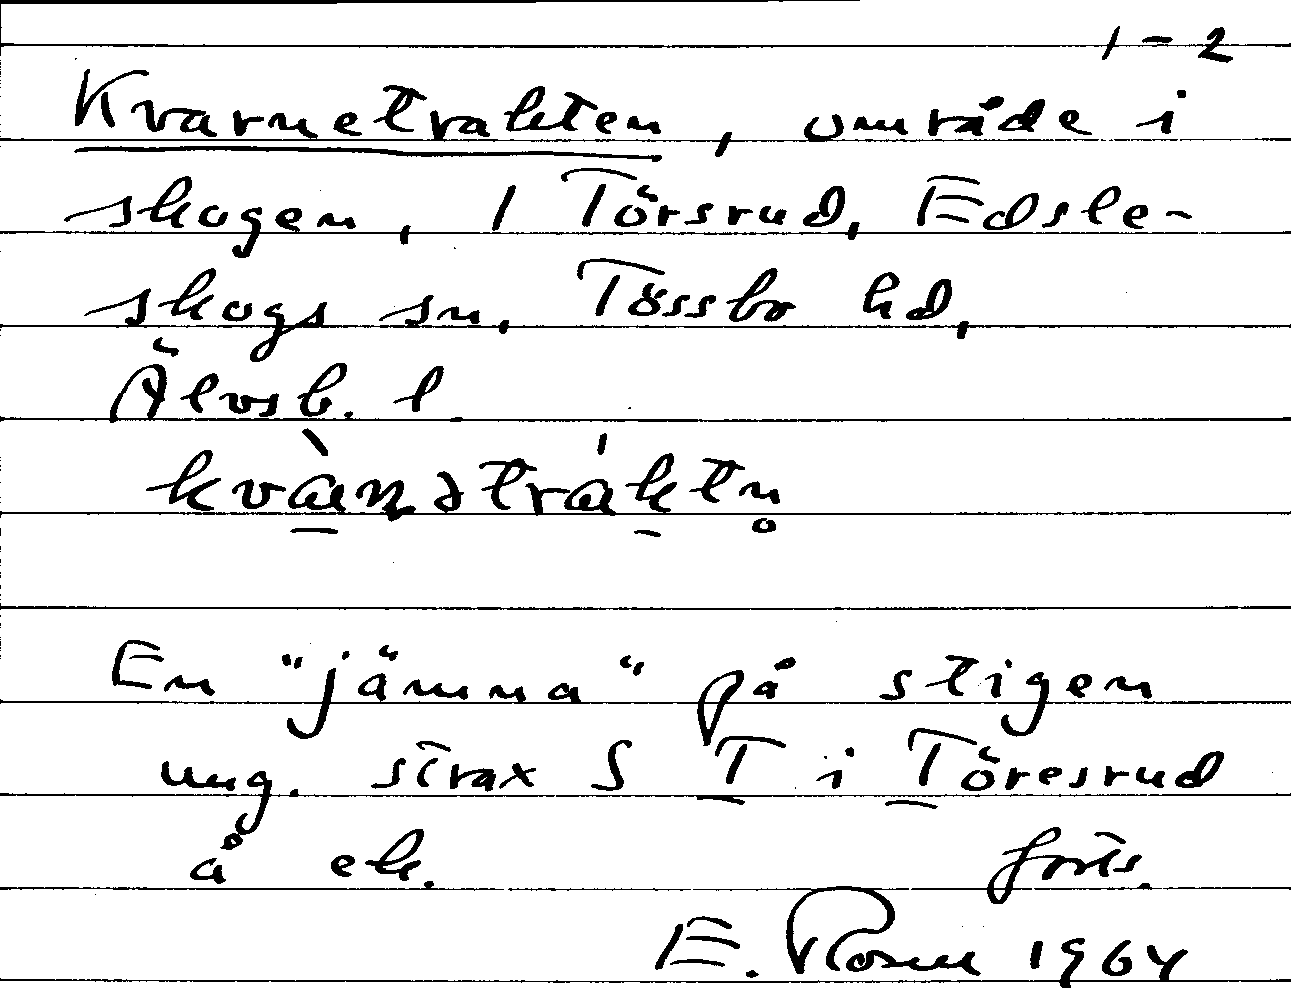 1-2
Kvarnetrakten, område i
skogen, 1 Törsrud, Edsle-
skogs sn, Tössbo hd,
Älvsb. l.
kvànətráktn̥
En "jämna" på stigen
ung. strax S T i Töresrud
å ek. forts.
E. Rosen 1964